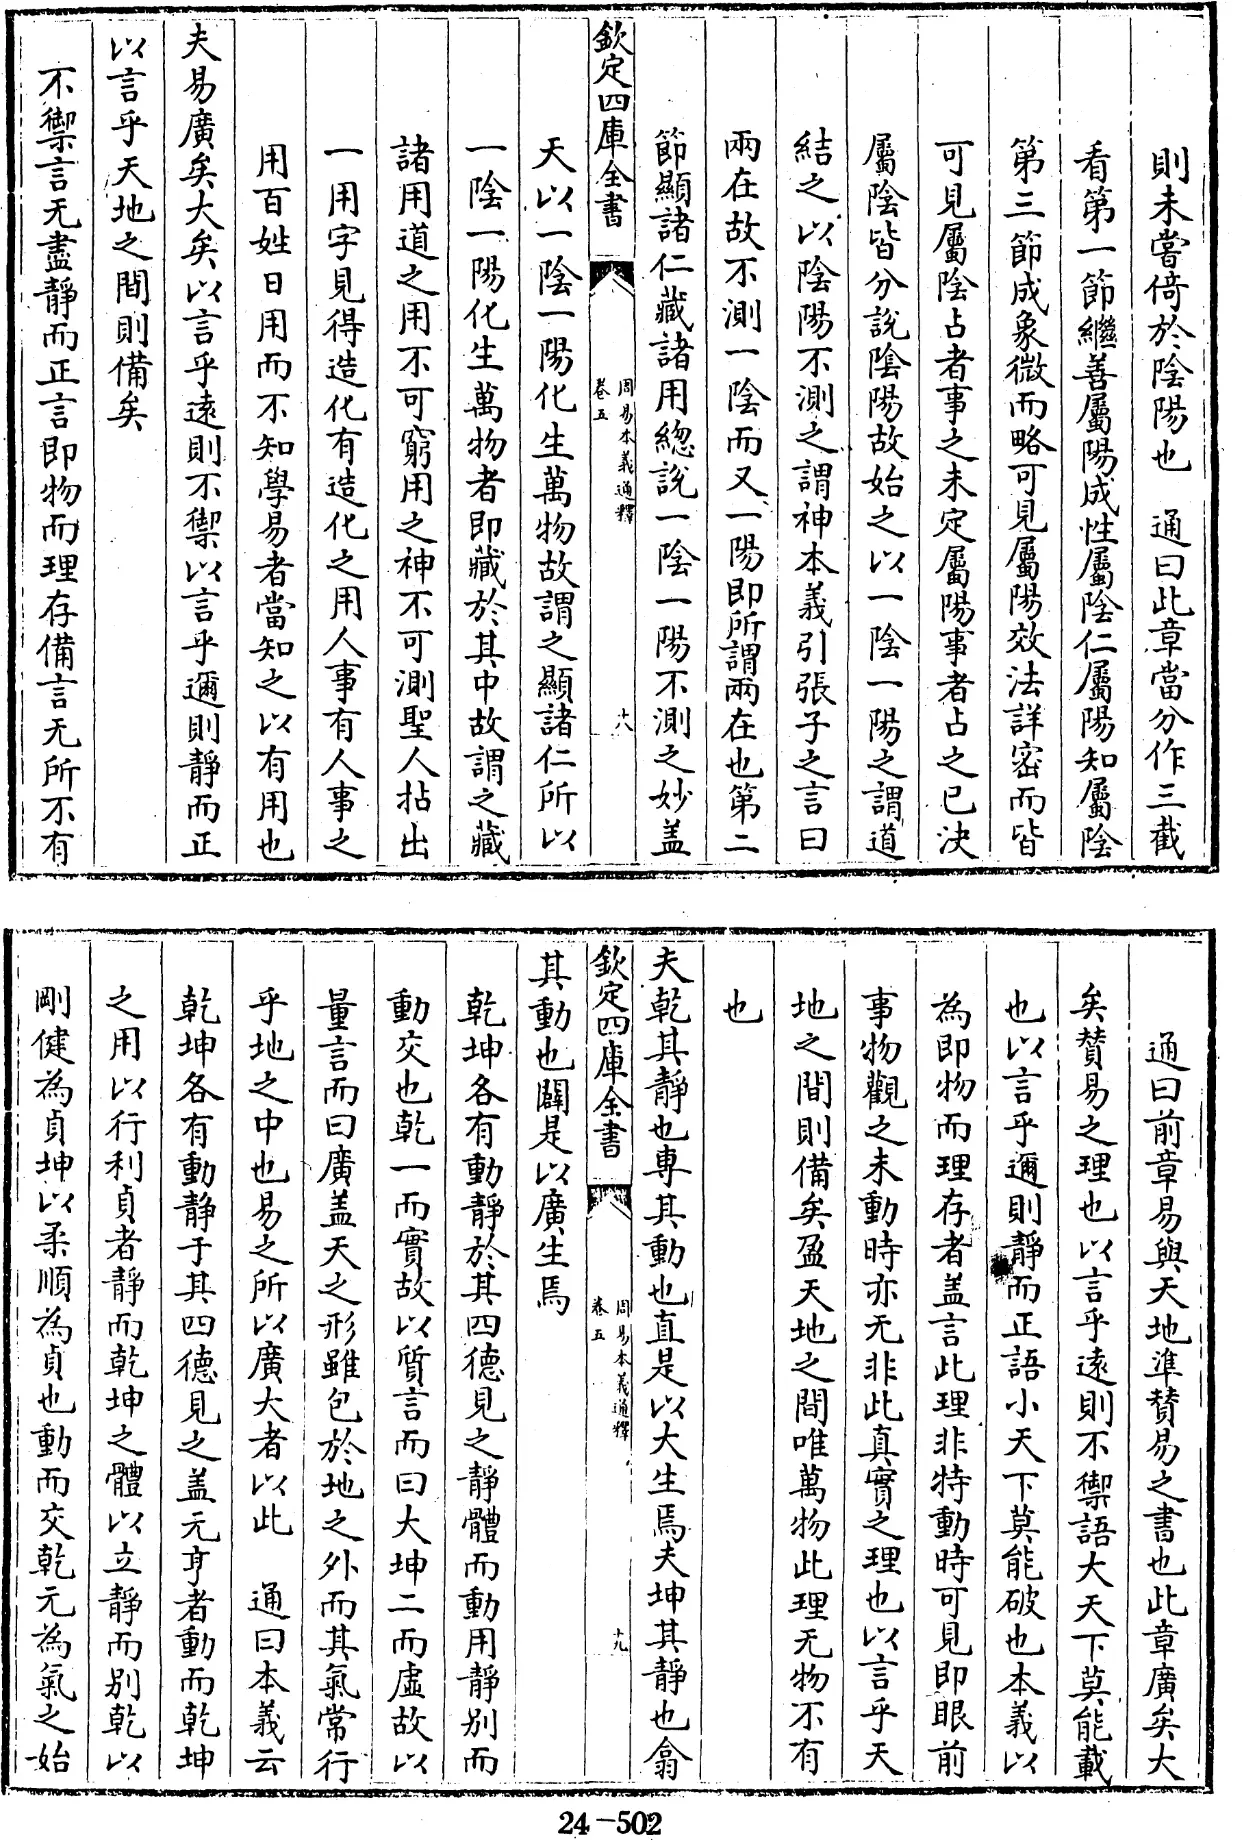 則未嘗倚於陰陽也　通曰此章當分作三截
看第一節繼善屬陽成性屬陰仁屬陽知屬陰
第三節成象微而略可見屬陽效法詳密而皆
可見屬陰占者事之未定屬陽事者占之已決
屬陰皆分說陰陽故始之以一陰一陽之謂道
結之以陰陽不測之謂神本義引張子之言曰
兩在故不測一陰而又一陽即所謂兩在也第二
節顯諸仁藏諸用總說一陰一陽不測之妙盖
欽定四庫全書
周易本義通釋
卷五
十八
天以一陰一陽化生萬物故謂之顯諸仁所以
一陰一陽化生萬物者即藏於其中故謂之藏
諸用道之用不可窮用之神不可測聖人拈出
一用字見得造化有造化之用人事有人事之
用百姓日用而不知學易者當知之以有用也
夫易廣矣大矣以言乎遠則不禦以言乎邇則靜而正
以言乎天地之間則備矣
不禦言无盡靜而正言即物而理存備言无所不有
通曰前章易與天地準賛易之書也此章廣矣大
矣賛易之理也以言乎遠則不禦語大天下莫能載
也以言乎邇則靜而正語小天下莫能破也本義以
為即物而理存者盖言此理非特動時可見即眼前
事物觀之未動時亦无非此真實之理也以言乎天
地之間則備矣盈天地之間唯萬物此理无物不有
也
夫乾其靜也專其動也直是以大生焉夫坤其靜也翕
欽定四庫全書
周易本義通釋
卷五
十九
其動也闢是以廣生焉
乾坤各有動靜於其四德見之靜體而動用靜別而
動交也乾一而實故以質言而曰大坤二而虛故以
量言而曰廣盖天之形雖包於地之外而其氣常行
乎地之中也易之所以廣大者以此　通曰本義云
乾坤各有動靜于其四德見之盖元亨者動而乾坤
之用以行利貞者靜而乾坤之體以立靜而別乾以
剛健為貞坤以柔順為貞也動而交乾元為氣之始
24-502